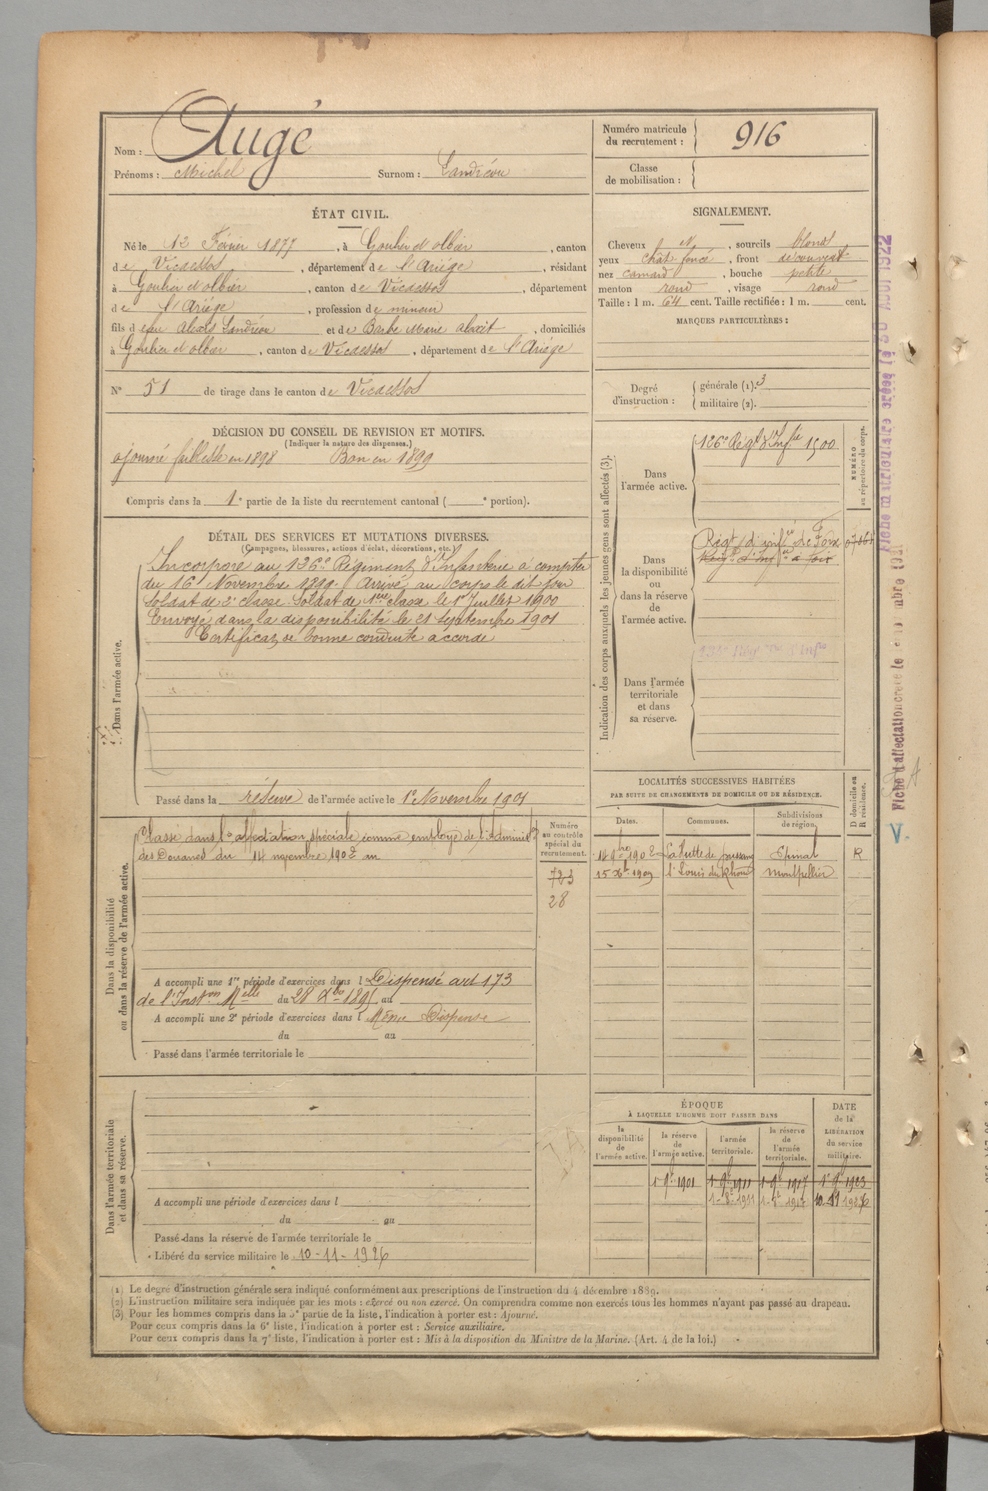 Nom : Augé
Prénoms : Michel Surnom : Candicou
Numéro matricule du recrutement : 916
Classe de mobilisation :
ÉTAT CIVIL.
Né le 12 Février 1877, à Goulier et olbier, canton
de Vicdessos, département de l'Ariége, résidant
à Goulier et olbier, canton de Vicdessos, département
de l'Ariége, profession de mineur
fils d eu Alexis Candicou et de Barbe Marie , domiciliés
à Goulier et olbier, canton de Vicdessos, département de l'Ariége
N° 51 de tirage dans le canton de Vicdessos
DÉCISION DU CONSEIL DE REVISION ET MOTIFS.
(Indiquer la nature des dispenses.)
ajourné faiblesse en 1898 Bon en 1899
Compris dans la 1e partie de la liste du recrutement cantonal ( e portion).
SIGNALEMENT.
Cheveux N, sourcils blond
yeux chat foncé, front découvert
nez camard, bouche petite
menton rond, visage rond
Taille : 1 m. 64 cent. Taille rectifiée : 1 m. cent.
MARQUES PARTICULIÈRES :
Degré d'instruction :
générale (1). 3
militaire (2).
DÉTAIL DES SERVICES ET MUTATIONS DIVERSES.
(Campagnes, blessures, actions d'éclat, décorations, etc.)
Dans l'armée active.
Incorporé au 126e Régiment d'Infanterie à compter
du 16 Novembre 1899. Arrivé au corps le dit jour
soldat de 2e classe. Soldat de 1ere classe le 1er Juillet 1900
Envoyé dans la disponibilité le 21 septembre 1901
Certificat de bonne conduite accordé
Passé dans la réserve de l'armée active le 1er Novembre 1901
Indication des corps auxquels les jeunes gens sont affectés (3).
Dans l'armée active.
126e Régt d'Infie 1500
NUMÉRO au répertoire du corps.
Dans la disponibilité ou dans la réserve de l'armée active.
Régt d'infie de Foix
Régt d'Infie à Foix
Dans l'armée territoriale et dans sa réserve.
Fiche matriculaire créée le 30 AOUT 1922
Fiche d'affectation créée le
V
Dans la disponibilité ou dans la réserve de l'armée active.
Classé dans l'affectation spéciale comme employé de l'Adminion
des Douanes du 14 novembre 1902 au
Numéro au contrôle spécial du recrutement.
723
28
A accompli une 1re période d'exercices dans l Dispensé art 173
de l'Instion Melle du 28 Xbre 1895 au
A accompli une 2e période d'exercices dans l Même Dispense
du au
Passé dans l'armée territoriale le
LOCALITÉS SUCCESSIVES HABITÉES
PAR SUITE DE CHANGEMENTS DE DOMICILE OU DE RÉSIDENCE.
Dates. Communes. Subdivisions de région. D domicile ou R résidence.
14 9bre 1902 La Hutte de Epinal R
15 1909 St Louis du Rhône Montpellier
Dans l'armée territoriale et dans sa réserve.
A accompli une période d'exercices dans l
du au
Passé dans la réserve de l'armée territoriale le
Libéré du service militaire le 10-11-1926
ÉPOQUE
À LAQUELLE L'HOMME DOIT PASSER DANS
la disponibilité de l'armée active. la réserve de l'armée active. l'armée territoriale. la réserve de l'armée territoriale. DATE de la LIBÉRATION du service militaire.
1 9bre 1901 1 9bre 1911 1 9bre 1917 1 9bre 1923
10-11 1926
(1) Le degré d'instruction générale sera indiqué conformément aux prescriptions de l'instruction du 4 décembre 1889.
(2) L'instruction militaire sera indiquée par les mots : exercé ou non exercé. On comprendra comme non exercés tous les hommes n'ayant pas passé au drapeau.
(3) Pour les hommes compris dans la 5e partie de la liste, l'indication à porter est : Ajourné.
Pour ceux compris dans la 6e liste, l'indication à porter est : Service auxiliaire.
Pour ceux compris dans la 7e liste, l'indication à porter est : Mis à la disposition du Ministre de la Marine. (Art. 4 de la loi.)